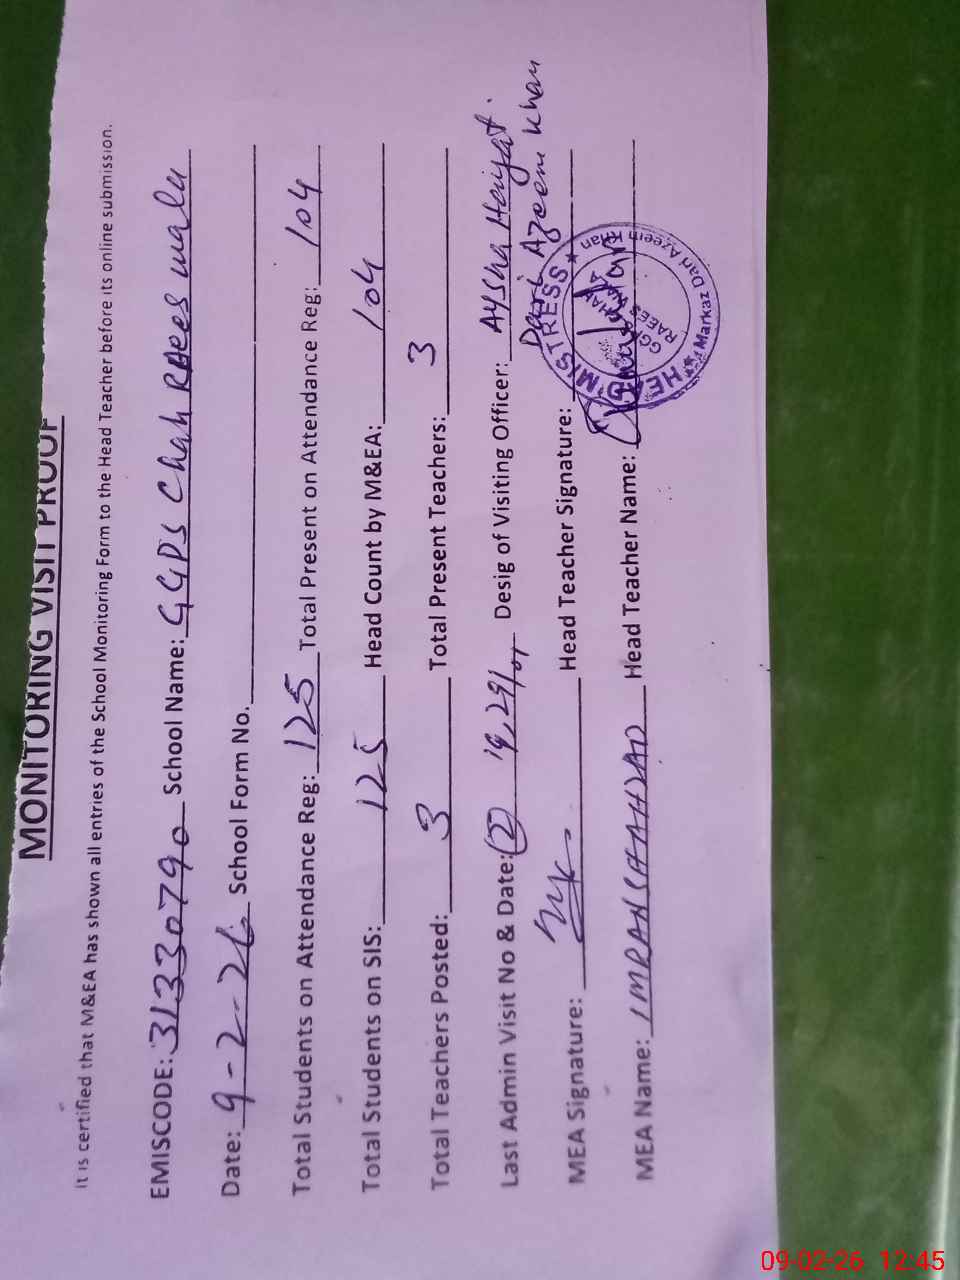 MONITORING VISIT PROOF
It is certified that M&EA has shown all entries of the School Monitoring Form to the Head Teacher before its online submission.
EMISCODE: 31330790 School Name: GGPS Chah RAees wala
Date: 9-2-26 School Form No.
Total Students on Attendance Reg: 125 Total Present on Attendance Reg: 104
Total Students on SIS: 125 Head Count by M&EA: 104
Total Teachers Posted: 3 Total Present Teachers: 3
Last Admin Visit No & Date: (2) Desig of Visiting Officer: Aysha Hayat
Dari Azeem Khan
MEA Signature: Head Teacher Signature:
MEA Name: IMRAN SHAHZAD Head Teacher Name:
HEAD MISTRESS
GGPS CHAH
RAEES WALA
Markaz Dari Azeem Khan
09-02-26 12:45